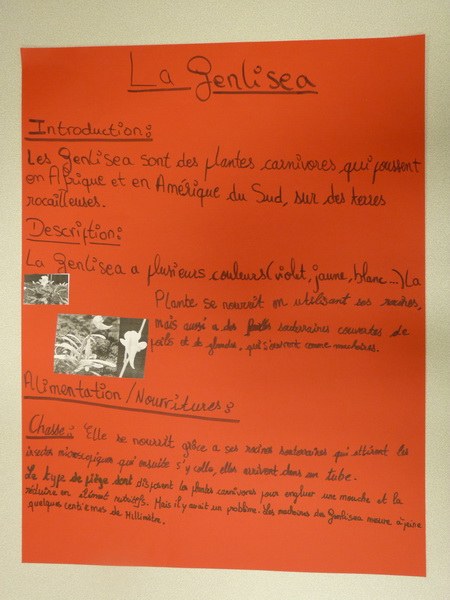 La Genlisea
Introduction:
Les Genlisea sont des plantes carnivores, qui poussent
en Afrique et en Amérique du Sud, sur des terres
rocailleuses.
Description:
La Genlisea a plusieurs couleurs (violet, jaune, blanc...) La
Plante se nourrit en utilisant ses racines,
mais aussi a des souterraines couvertes de
poils et de glandes, qui s'ouvrent comme machoires.
Alimentation / Nourritures:
Chasse: Elle se nourrit grâce a ses racines souterraines qui attirent les
insectes microscopiques qui ensuite s'y colle, elles arrivent dans un tube.
Le type de piège dont disposent les plantes carnivores pour engluer une mouche et la
réduire en élément nutritifs. Mais il y avait un problème: les machoires du Genlisea mesure à peine
quelques centiemes de Millimètre.